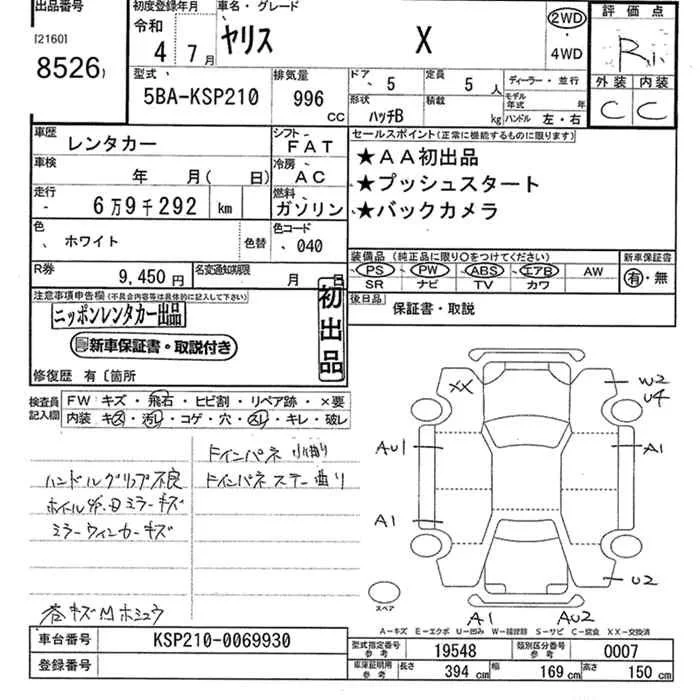 出品番号
[2160]
8526
初度登録年月
令和
4 7月
車名・グレード
ヤリス X
2WD
・
4WD
評価点
R
外装 内装
C C
型式
5BA-KSP210
排気量
996 CC
ドア 5
定員 5 人
形状 ハッチB
積載 kg
ディーラー・並行
モデル年式 年
ハンドル 左・右
車歴 レンタカー
シフト FAT
車検 年 月( 日)
冷房 AC
走行 6万9千292 km
燃料 ガソリン
色 ホワイト 色替
色コード 040
R券 9,450円
名変通知期限 月 日
セールスポイント(正常に機能するものに限ります)
★AA初出品
★プッシュスタート
★バックカメラ
装備品(純正品に限り○をつけてください)
PS PW ABS エアB AW
SR ナビ TV カワ
新車保証書
有・無
後日品 保証書・取説
注意事項申告欄(不具合内容等は具体的に記入して下さい)
ニッポンレンタカー出品
新車保証書・取説付き
初出品
修復歴 有〔箇所
検査員記入欄
FW キズ・飛石・ヒビ割・リペア跡・×要
内装 キズ・汚レ・コゲ・穴・スレ・キレ・破レ
ハンドルグリップ不良
ミラーウィンカーキズ
ドインパネ ステー曲り
XX
W2
U4
AU1
A1
A1
U2
A1
AU2
スペア
A-キズ E-エクボ U-凹み W-補修跡 S-サビ C-腐食 XX-交換済
車台番号 KSP210-0069930
登録番号
型式指定番号 参考 19548
類別区分番号 参考 0007
車庫証明用 参考 長さ 394 cm 幅 169 cm 高さ 150 cm